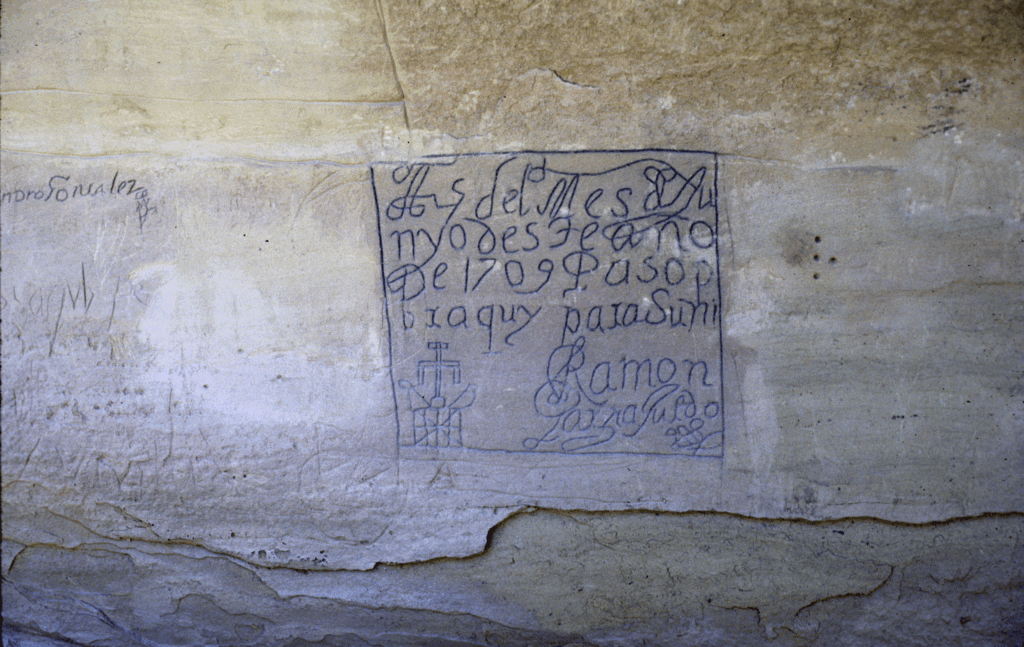 ndro Gonzalez
A 25 del Mes de Ju
nyo deste año
De 1709 Paso p
or aquy para Suñi
Ramon
Garzia Jurdo